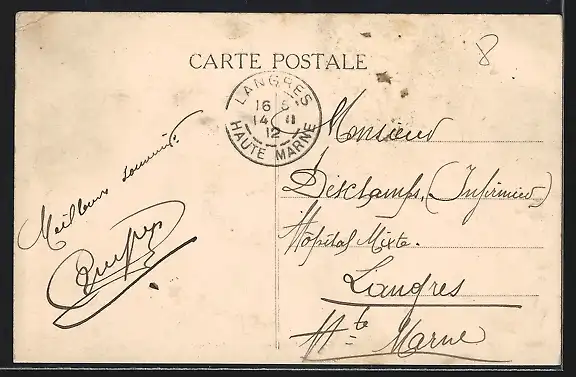 CARTE POSTALE
8
LANGRES
16
14 11
12
HAUTE MARNE
Meilleurs souvenirs
Monsieur
Deschamps, (Infirmier)
Hôpital Mixte.
Langres
Hte Marne